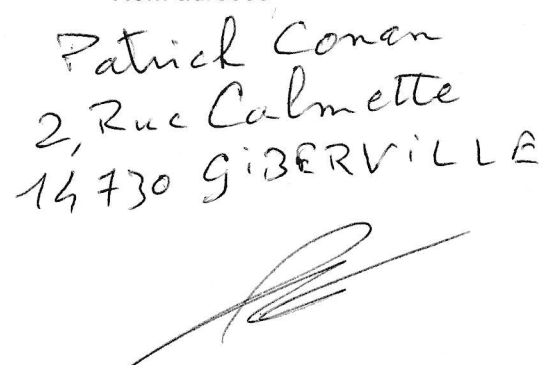 Patrick Conan
2, Rue Calmette
14730 GiBERViLLE